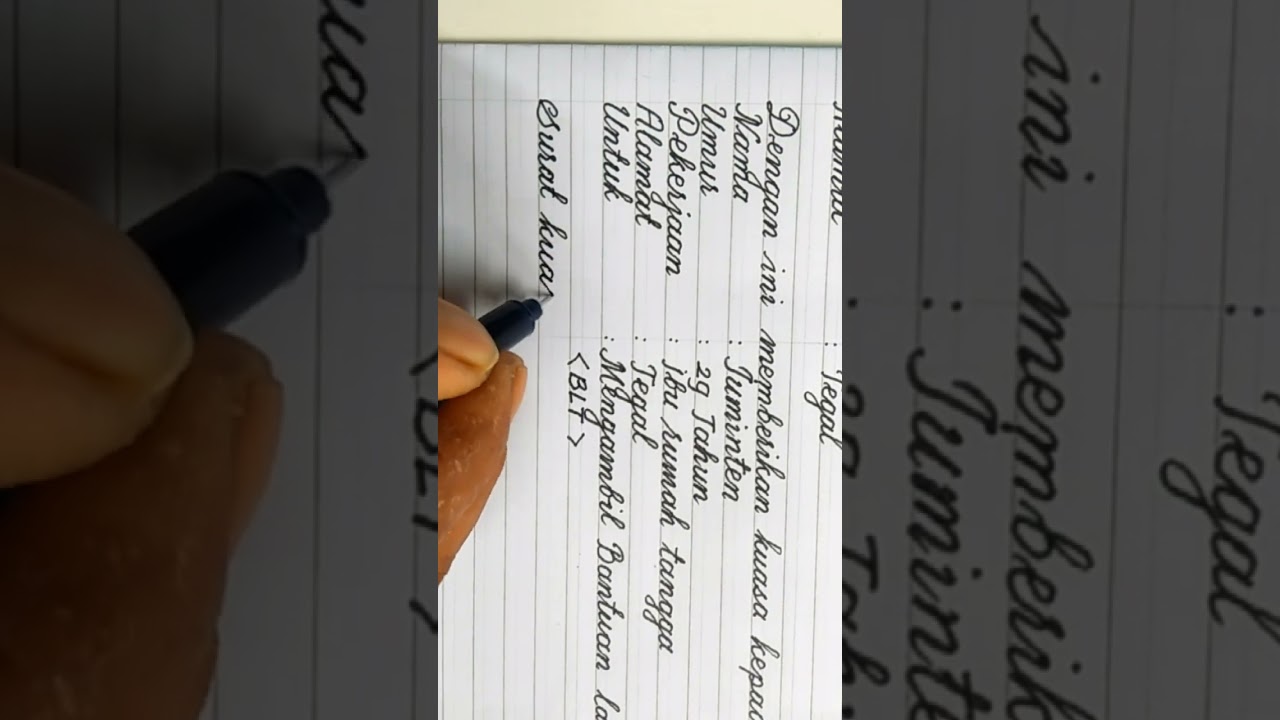 : Tegal
Dengan ini memberikan kuasa
Nama : Tuminten
Umur : 29 Tahun
Pekerjaan : ibu rumah tangga
Alamat : Tegal
Untuk : Mengambil Bantuan la
<BLT>
surat kua